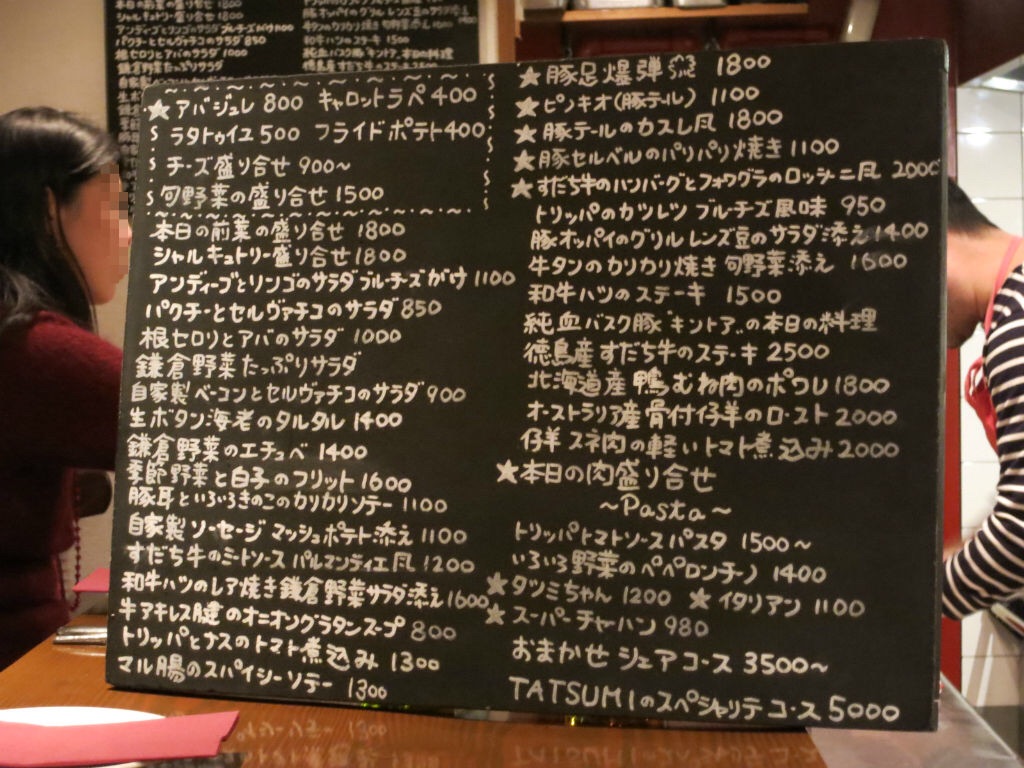 本日の前菜の盛り合せ 1800
シャルキュトリー盛り合せ 1800
アンディーブとリンゴのサラダ ブルーチーズがけ 1100
パクチーとセルヴァチコのサラダ 850
根セロリとアバのサラダ 1000
鎌倉野菜たっぷりサラダ
★アバジュレ 800 キャロットラペ 400
ラタトゥイユ 500 フライドポテト 400
チーズ盛り合せ 900~
旬野菜の盛り合せ 1500
本日の前菜の盛り合せ 1800
シャルキュトリー盛り合せ 1800
アンディーブとリンゴのサラダ ブルーチーズがけ 1100
パクチーとセルヴァチコのサラダ 850
根セロリとアバのサラダ 1000
鎌倉野菜たっぷりサラダ
自家製ベーコンとセルヴァチコのサラダ 900
生ボタン海老のタルタル 1400
鎌倉野菜のエチュベ 1400
季節野菜と白子のフリット 1600
豚耳といろいろきのこのカリカリソテー 1100
自家製ソーセージ マッシュポテト添え 1100
すだち牛のミートソース パルマンティエ風 1200
和牛ハツのレア焼き鎌倉野菜サラダ添え 1600
牛アキレス腱のオニオングラタンスープ 800
トリッパとナスのトマト煮込み 1300
マル腸のスパイシーソテー 1300
★豚足爆弾 1800
★ピノキオ(豚テール) 1100
★豚テールのカスレ風 1800
★豚セルベルのパリパリ焼き 1100
★すだち牛のハンバーグとフォワグラのロッシーニ風 2000
トリッパのカツレツ ブルーチーズ風味 950
豚オッパイのグリル レンズ豆のサラダ添え 1400
牛タンのカリカリ焼き 旬野菜添え 1600
和牛ハツのステーキ 1500
純血バスク豚"キントア"の本日の料理
徳島産すだち牛のステーキ 2500
北海道産鴨むね肉のポワレ 1800
オーストラリア産骨付仔羊のロースト 2000
仔羊スネ肉の軽いトマト煮込み 2000
★本日の肉盛り合せ
~Pasta~
トリッパトマトソースパスタ 1500~
いろいろ野菜のペペロンチーノ 1400
★タツミちゃん 1200 ★イタリアン 1100
★スーパーチャーハン 980
おまかせシェアコース 3500~
TATSUMIのスペシャリテコース 5000